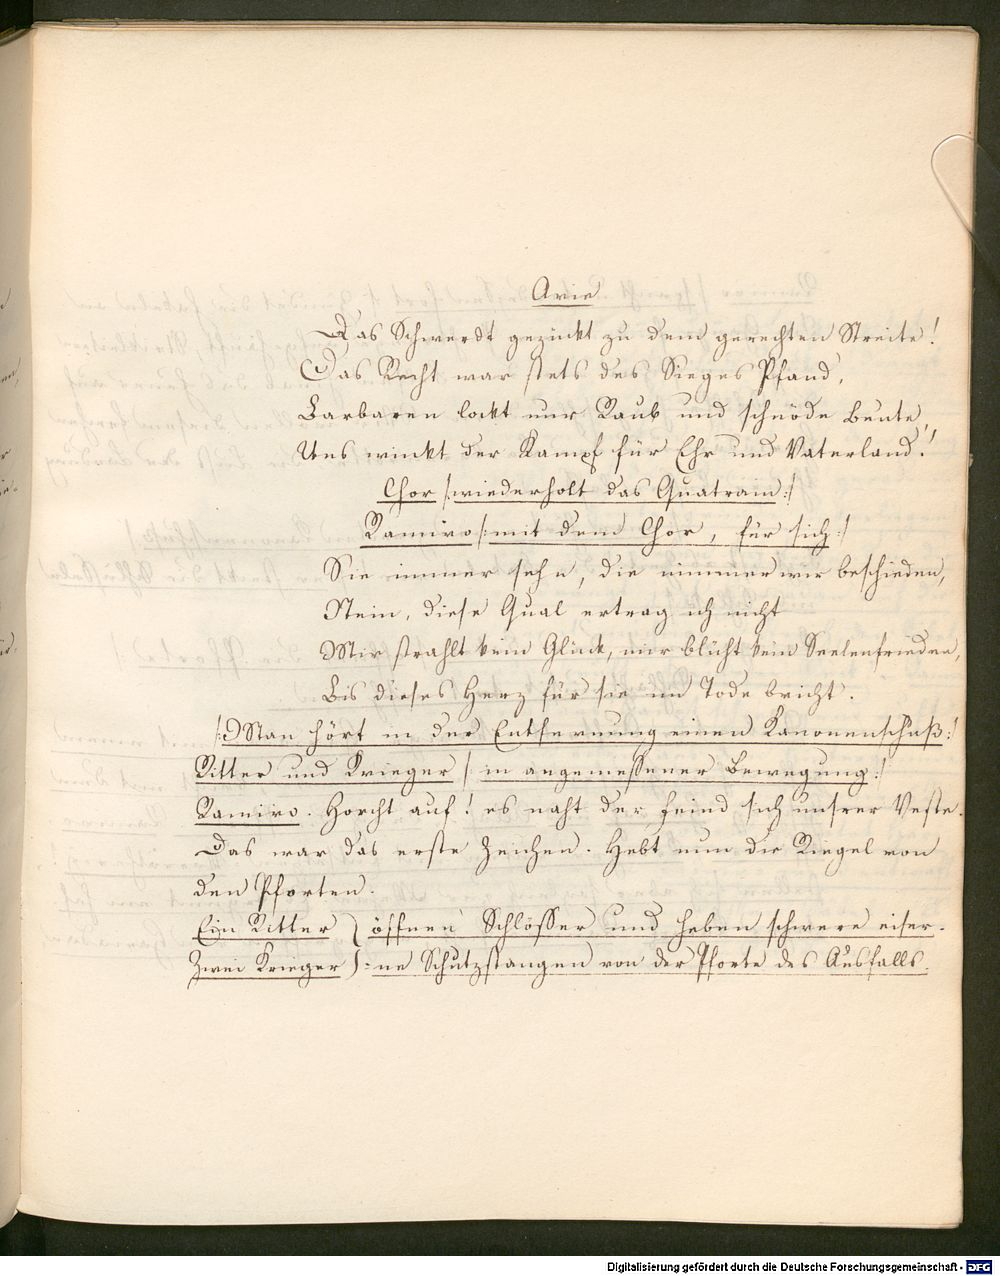 Arie
Das Schwerdt gezückt zu dem gerechten Streite!
Das Recht war stets des Sieges Pfand,
Barbaren lockt nur Raub und schnöde Beute,
Uns winkt der Kampf für Ehr und Vaterland!
Chor /:wiederholt das Quatrain:/
Ramiro /:mit dem Chor, für sich:/
Sie immer sehn, die nimmer mir beschieden,
Nein, diese Qual ertrag ich nicht
Mir strahlt kein Glück, mir blüht kein Seelenfrieden,
Bis dieses Herz für sie im Tode bricht.
/:Man hört in der Entfernung einen Kanonenschuß:/
Ritter und Krieger / in angemessener Bewegung:/
Ramiro. Horcht auf! es naht der Feind sich unsrer Veste.
Das war das erste Zeichen. Hebt nun die Riegel von
den Pforten.
Ein Ritter } öffnen Schlösser und heben schwere eiser-
Zwei Krieger } :ne Schutzstangen von der Pforte des Ausfalls.
Digitalisierung gefördert durch die Deutsche Forschungsgemeinschaft - DFG